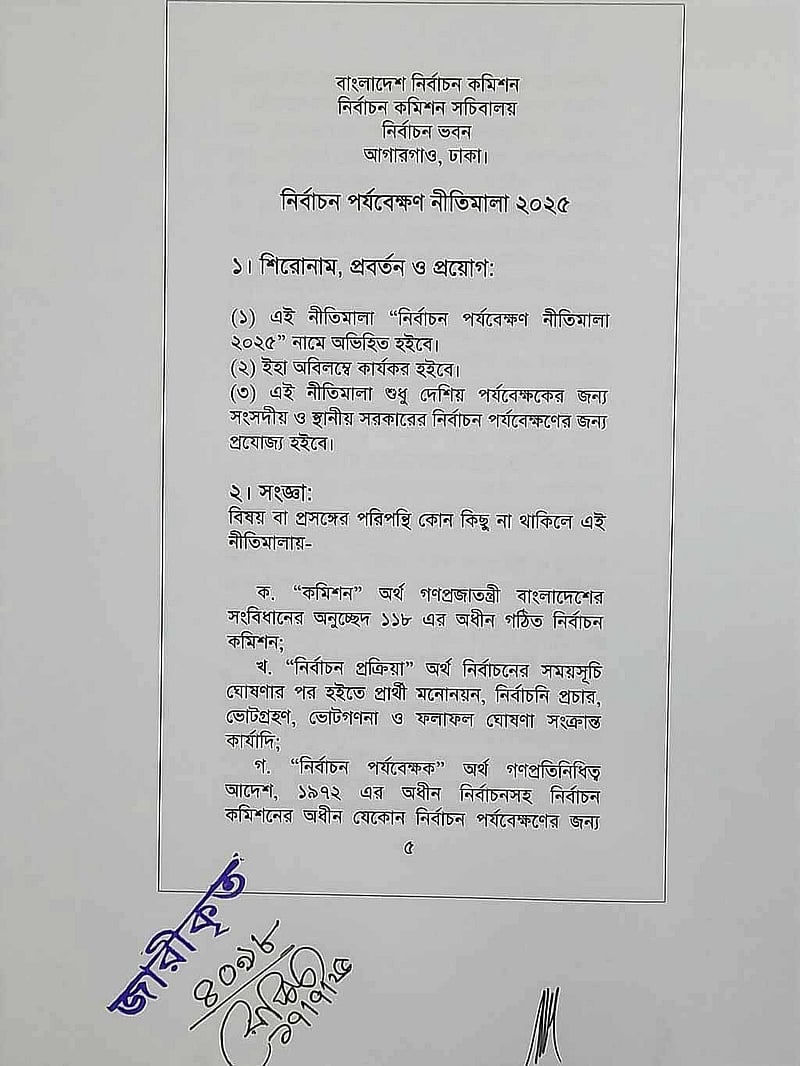 বাংলাদেশ নির্বাচন কমিশন
নির্বাচন কমিশন সচিবালয়
নির্বাচন ভবন
আগারগাও, ঢাকা।
নির্বাচন পর্যবেক্ষণ নীতিমালা ২০২৫
১। শিরোনাম, প্রবর্তন ও প্রয়োগ:
(১) এই নীতিমালা “নির্বাচন পর্যবেক্ষণ নীতিমালা
২০২৫” নামে অভিহিত হইবে।
(২) ইহা অবিলম্বে কার্যকর হইবে।
(৩) এই নীতিমালা শুধু দেশিয় পর্যবেক্ষকের জন্য
সংসদীয় ও স্থানীয় সরকারের নির্বাচন পর্যবেক্ষণের জন্য
প্রযোজ্য হইবে।
২। সংজ্ঞা:
বিষয় বা প্রসঙ্গের পরিপন্থি কোন কিছু না থাকিলে এই
নীতিমালায়-
ক. “কমিশন” অর্থ গণপ্রজাতন্ত্রী বাংলাদেশের
সংবিধানের অনুচ্ছেদ ১১৮ এর অধীন গঠিত নির্বাচন
কমিশন;
খ. “নির্বাচন প্রক্রিয়া” অর্থ নির্বাচনের সময়সূচি
ঘোষণার পর হইতে প্রার্থী মনোনয়ন, নির্বাচনি প্রচার,
ভোটগ্রহণ, ভোটগণনা ও ফলাফল ঘোষণা সংক্রান্ত
কার্যাদি;
গ. “নির্বাচন পর্যবেক্ষক” অর্থ গণপ্রতিনিধিত্ব
আদেশ, ১৯৭২ এর অধীন নির্বাচনসহ নির্বাচন
কমিশনের অধীন যেকোন নির্বাচন পর্যবেক্ষণের জন্য
৫
জারীকৃত